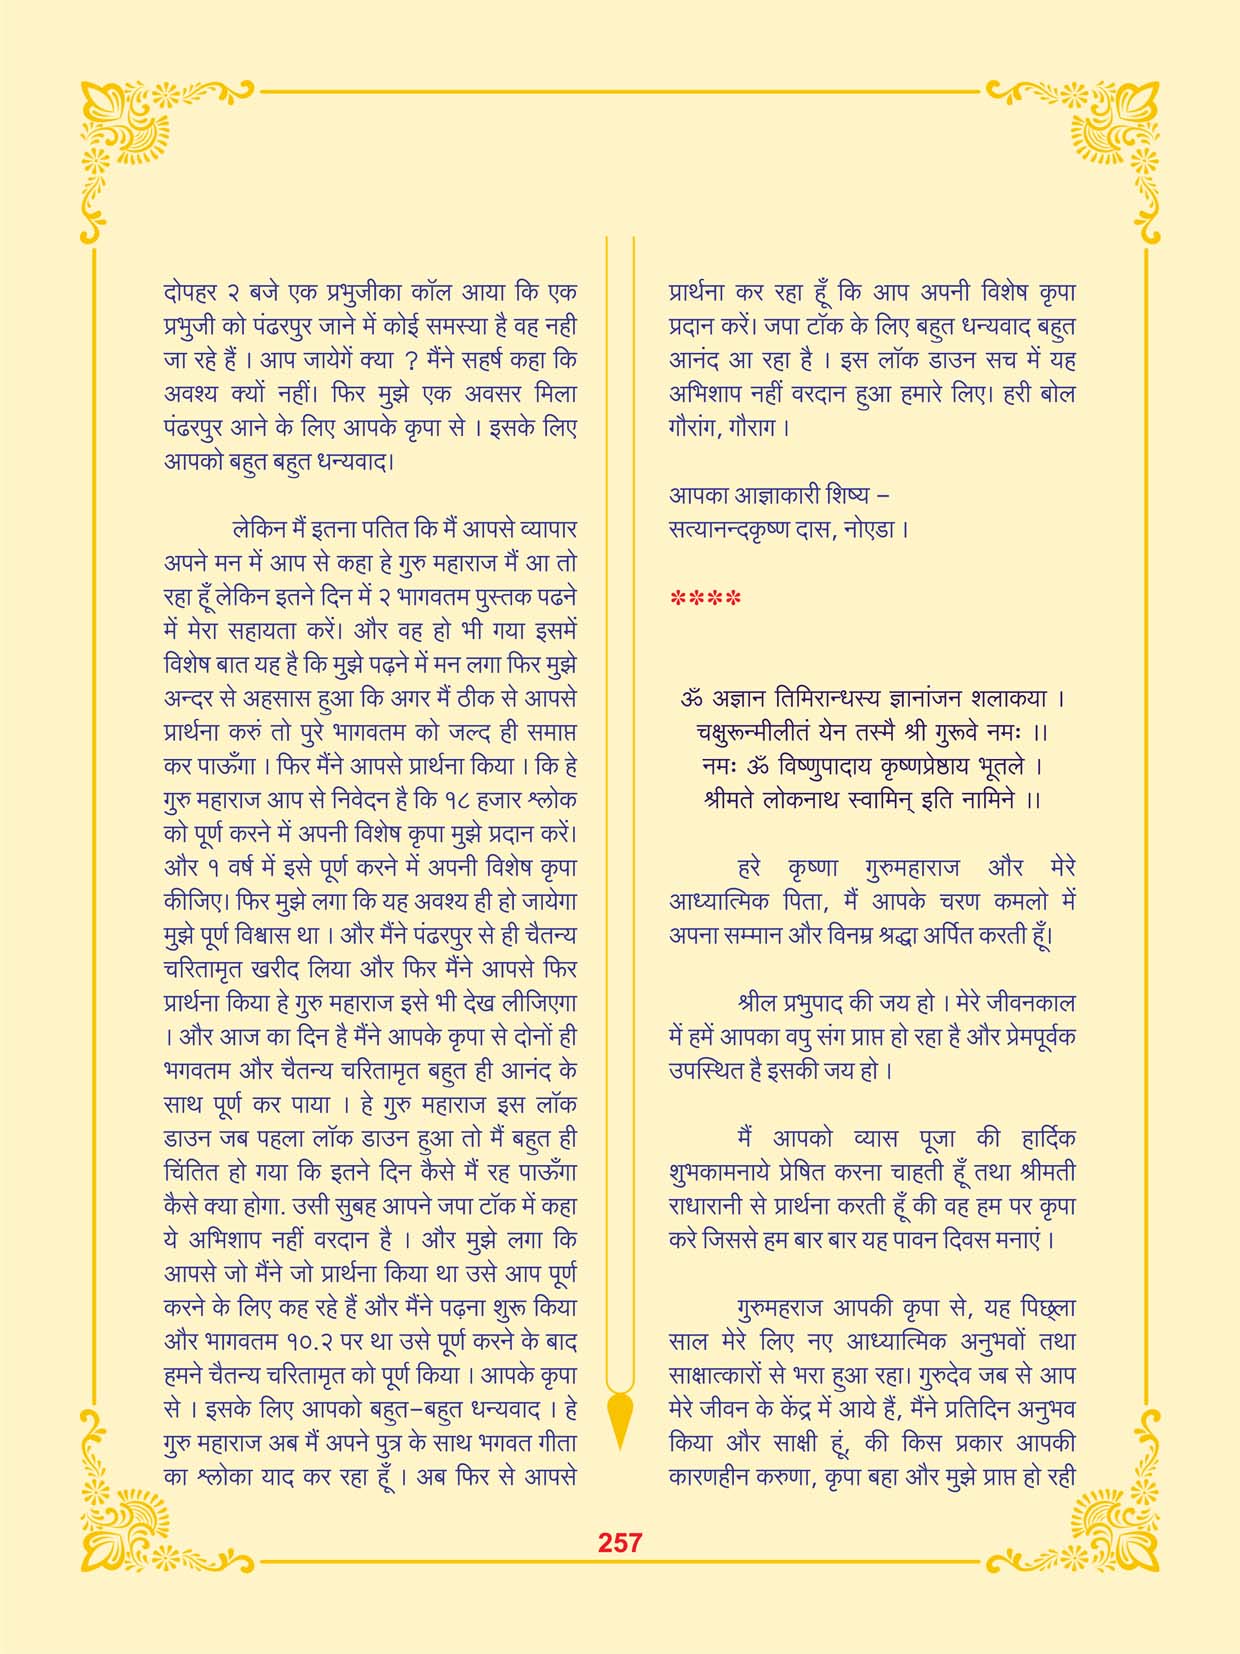 दोपहर २ बजे एक प्रभुजीका कॉल आया कि एक
प्रभुजी को पंढरपुर जाने में कोई समस्या है वह नही
जा रहे हैं । आप जायेगें क्या ? मैंने सहर्ष कहा कि
अवश्य क्यों नहीं। फिर मुझे एक अवसर मिला
पंढरपुर आने के लिए आपके कृपा से । इसके लिए
आपको बहुत बहुत धन्यवाद।
लेकिन मैं इतना पतित कि मैं आपसे व्यापार
अपने मन में आप से कहा हे गुरु महाराज मैं आ तो
रहा हूँ लेकिन इतने दिन में २ भागवतम पुस्तक पढने
में मेरा सहायता करें। और वह हो भी गया इसमें
विशेष बात यह है कि मुझे पढ़ने में मन लगा फिर मुझे
अन्दर से अहसास हुआ कि अगर मैं ठीक से आपसे
प्रार्थना करुं तो पुरे भागवतम को जल्द ही समाप्त
कर पाऊँगा । फिर मैंने आपसे प्रार्थना किया । कि हे
गुरु महाराज आप से निवेदन है कि १८ हजार श्लोक
को पूर्ण करने में अपनी विशेष कृपा मुझे प्रदान करें।
और १ वर्ष में इसे पूर्ण करने में अपनी विशेष कृपा
कीजिए। फिर मुझे लगा कि यह अवश्य ही हो जायेगा
मुझे पूर्ण विश्वास था । और मैंने पंढरपुर से ही चैतन्य
चरितामृत खरीद लिया और फिर मैंने आपसे फिर
प्रार्थना किया हे गुरु महाराज इसे भी देख लीजिएगा
। और आज का दिन है मैंने आपके कृपा से दोनों ही
भगवतम और चैतन्य चरितामृत बहुत ही आनंद के
साथ पूर्ण कर पाया । हे गुरु महाराज इस लॉक
डाउन जब पहला लॉक डाउन हुआ तो मैं बहुत ही
चिंतित हो गया कि इतने दिन कैसे मैं रह पाऊँगा
कैसे क्या होगा. उसी सुबह आपने जपा टॉक में कहा
ये अभिशाप नहीं वरदान है । और मुझे लगा कि
आपसे जो मैंने जो प्रार्थना किया था उसे आप पूर्ण
करने के लिए कह रहे हैं और मैंने पढ़ना शुरू किया
और भागवतम १०.२ पर था उसे पूर्ण करने के बाद
हमने चैतन्य चरितामृत को पूर्ण किया । आपके कृपा
से । इसके लिए आपको बहुत–बहुत धन्यवाद । हे
गुरु महाराज अब मैं अपने पुत्र के साथ भगवत गीता
का श्लोका याद कर रहा हूँ । अब फिर से आपसे
प्रार्थना कर रहा हूँ कि आप अपनी विशेष कृपा
प्रदान करें। जपा टॉक के लिए बहुत धन्यवाद बहुत
आनंद आ रहा है । इस लॉक डाउन सच में यह
अभिशाप नहीं वरदान हुआ हमारे लिए। हरी बोल
गौरांग, गौराग ।
आपका आज्ञाकारी शिष्य –
सत्यानन्दकृष्ण दास, नोएडा ।
****
ॐ अज्ञान तिमिरान्धस्य ज्ञानांजन शलाकया ।
चक्षुरून्मीलीतं येन तस्मै श्री गुरूवे नमः ।।
नमः ॐ विष्णुपादाय कृष्णप्रेष्ठाय भूतले ।
श्रीमते लोकनाथ स्वामिन् इति नामिने ।।
हरे कृष्णा गुरुमहाराज और मेरे
आध्यात्मिक पिता, मैं आपके चरण कमलो में
अपना सम्मान और विनम्र श्रद्धा अर्पित करती हूँ।
श्रील प्रभुपाद की जय हो । मेरे जीवनकाल
में हमें आपका वपु संग प्राप्त हो रहा है और प्रेमपूर्वक
उपस्थित है इसकी जय हो ।
मैं आपको व्यास पूजा की हार्दिक
शुभकामनाये प्रेषित करना चाहती हूँ तथा श्रीमती
राधारानी से प्रार्थना करती हूँ की वह हम पर कृपा
करे जिससे हम बार बार यह पावन दिवस मनाएं ।
गुरुमहराज आपकी कृपा से, यह पिछ्ला
साल मेरे लिए नए आध्यात्मिक अनुभवों तथा
साक्षात्कारों से भरा हुआ रहा। गुरुदेव जब से आप
मेरे जीवन के केंद्र में आये हैं, मैंने प्रतिदिन अनुभव
किया और साक्षी हूं, की किस प्रकार आपकी
कारणहीन करुणा, कृपा बहा और मुझे प्राप्त हो रही
257